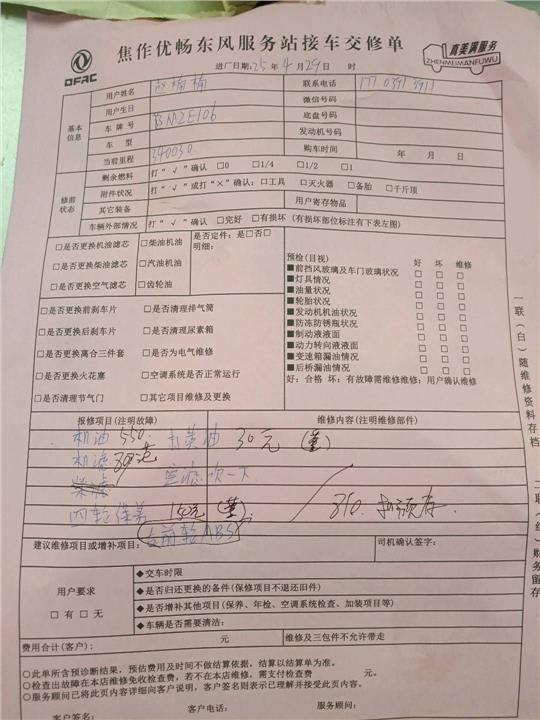 DFAC
焦作优畅东风服务站接车交修单
真美满服务
ZHENMEIMANFUWU
进厂日期:25年4月29日 时
基本信息
用户姓名 赵楠楠 联系电话
用户生日 微信号码
车牌号 底盘号码
车型 发动机号码
当前里程 340030 购车时间 年 月 日
修前状态
剩余燃料 打“√”确认 □0 □1/4 □1/2 □1
附件状况 打“√”或打“×”确认:□工具 □灭火器 □备胎 □千斤顶
其它装备 用户寄存物品
车辆外部情况 打“√”确认 □完好 □有损坏(有损坏部位标注有下表左图)
□是否更换机油滤芯 □柴油机油 是否定件:是□否□
明细:
□是否更换柴油滤芯 □汽油机油
□是否更换空气滤芯 □齿轮油
预检(目视) 好 坏 维修
■前挡风玻璃及车门玻璃状况 □ □ □
■灯具情况 □ □ □
■油量状况 □ □ □
■轮胎状况 □ □ □
■发动机机油状况 □ □ □
■防冻防锈瓶状况 □ □ □
■制动液液面 □ □ □
■动力转向液液面 □ □ □
■变速箱漏油情况 □ □ □
■后桥漏油情况 □ □ □
好:合格 坏:有故障需维修维修:用户确认维修
□是否更换前刹车片 □是否清理排气筒
□是否更换后刹车片 □是否清理尿素箱
□是否更换离合三件套 □是否为电气维修
□是否更换火花塞 □空调系统是否正常运行
□是否清理节气门 □其它项目维修及更换
报修项目(注明故障) 维修内容(注明维修部件)
机油 550. 打黄油 30元
机滤
柴滤 空滤吹一下
四轮保养 150元 850.
右前轮ABS
建议维修项目或增补项目: 司机确认签字:
用户要求
□有□无
◆交车时限
◆是否归还更换的备件(保修项目不退还旧件)
◆是否增补其他项目(保养、年检、空调系统检查、加装项目等)
◆车辆是否需要清洁:
费用合计(客户): 元 维修及三包件不允许带走
○此单所含预诊断结果,预估费用及时间不做结算依据,结算以结算单为准。
○检查出故障在本店维修免收检查费,若不在本店维修,需支付检查费 元。
○服务顾问已将此页内容详细向客户说明,客户签名则表示已理解并接受此页内容。
客户签名: 客户电话: 服务顾问:
一联(白)随维修资料存档
二联(红)财务留存